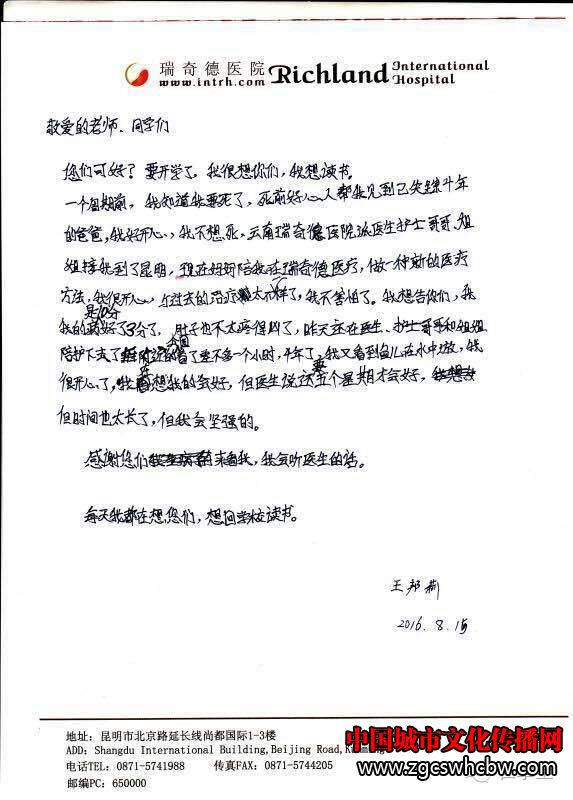 瑞奇德医院 Richland International
www.intrh.com Hospital
敬爱的老师、同学们
您们可好？要开学了，我很想你们，我想读书。
一个星期前，我知道我要死了，死前好心人帮我见到已失踪十年
的爸爸，我好开心，我不想死，云南瑞奇德医院派医生护士哥哥、姐
姐接我到了昆明，现在妈妈陪我在瑞奇德医疗，做一种新的医疗
方法，我很开心，与过去的治疗太不一样了，我不害怕了。我想告你们，我
是10分
我的病好了3分了，肚子也不太疼得的了，昨天还在医生、护士哥哥和姐姐
陪护下去了公园差不多一个小时，半年了，我又看到鱼儿在水中游，我
很开心了，我想我的会好，但医生说还要五个星期才会好，
但时间也太长了，但我会坚强的。
感谢您们来看我，我会听医生的话。
每天我都在想您们，想回学校读书。
王邦
2016.8.15
地址：昆明市北京路延长线尚都国际1-3楼
ADD: Shangdu International Building,Beijing Road,
电话TEL：0871-5741988 传真FAX：0871-5744205
邮编PC：650000
中国城市文化传播网
www.zgcswhcbw.com